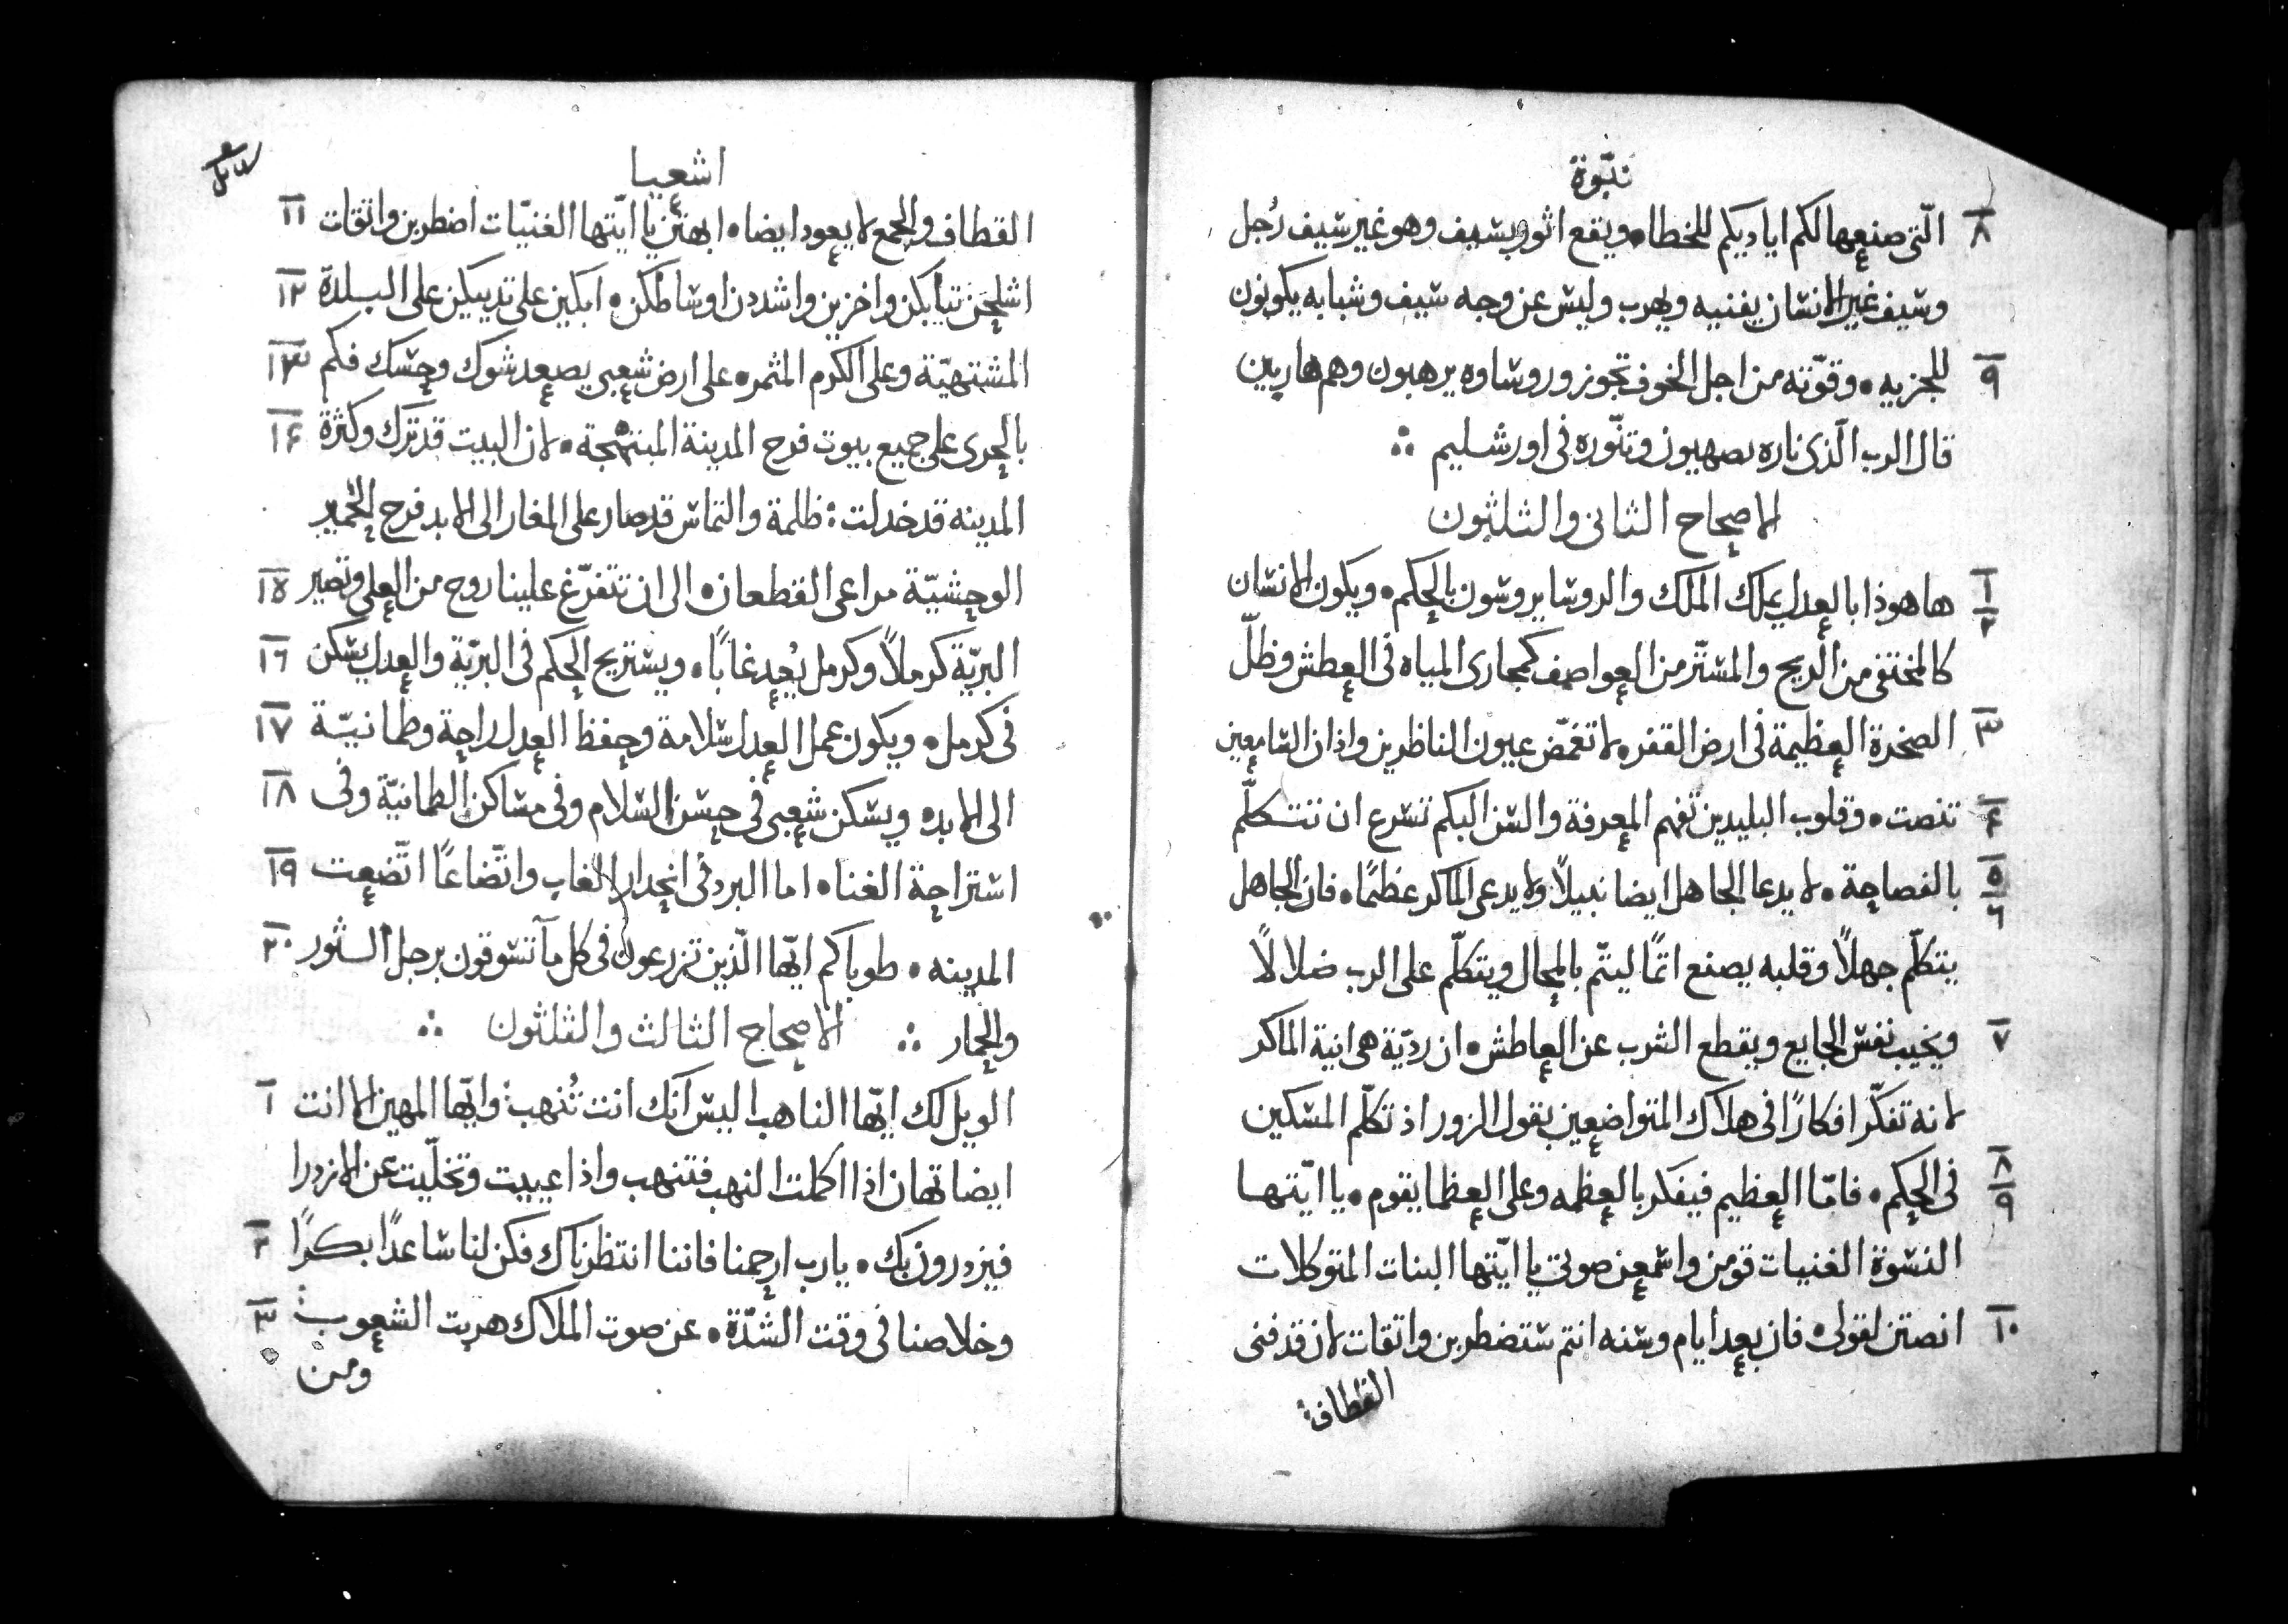 نبوّة
٨ الّتى صنعها لكم اياديكم للخطاه ويقع اثور بسيف وهو غير سيف رُجل
وسيف غير الانسان يفنيه ويهرب وليس عن وجه سيف وشبابه يكونون
٩ للجزيه • وقوّته من اجل الخوف تجوز وروساوه يرهبون وهم هاربين
قال الرب الّذى ناره بصهيون وتنّوره فى اورشليم ∴
الاصحاح الثانى والثلثون
١ ٢ ها هوذا بالعدل يملك الملك والروسا يروسون بالحكم • ويكون الانسان
كالمختفى من الريح والمستّر من العواصف كمجارى المياه فى العطش وظلّ
٣ الصخرة العظيمة فى ارض القفر • لا تغمّض عيون الناظرين واذان السامعين
٤ تنصت • وقلوب البليدين تفهم المعرفة والسن البكم تسرع ان تتكلّم
٥ ٦ بالفصاحة • لا يدعا الجاهل ايضا نبيلاً ولا يدعى الماكر عظيمًا • فان الجاهل
يتكلّم جهلاً وقلبه يصنع اثمًا ليتّم بالمحال ويتكلّم على الرب ضلالاً
٧ ويخيب نفس الجايع ويقطع الشرب عن العاطش • ان رديّة هى انية الماكر
لانه تفكّر افكارًا فى هلاك المتواضعين بقول الزور اذ تكلّم المسكين
٨ ٩ فى الحكم • فامّا العظيم فيفكر بالعظمه وعلى العظما يقوم • يا ايّتها
النسوة الغنيات قومن واسمعن صوتى يا ايّتها البنات المتوكلات
١٠ انصتن لقولى • فان بعد ايام وسنه انتم ستضطربن واتقات لان قد فنى
القطاف
اشعيا
١١ القطاف والجمع لا يعود ايضا • ابهتن يا ايّتها الغنيّات اضطربن واتقات
١٢ اشلحن تيابكن واخزين واشددن اوساطكن • ابكين على تدييكن على البلدة
١٣ المشتهيّة وعلى الكرم المثمر • على ارض شعبى يصعد شوك وحسك فكم
١٤ بالحرى على جميع بيوت فرح المدينة المبتهجة • لان البيت قد ترك وكثرة
المدينه قد خدلت : ظلمة والتماس قد صار على المغار الى الابد فرح الحمير
١٥ الوحشيّة مراعى القطعان • الى ان تتفرّغ علينا روح من العلى وتصير
١٦ البريّة كرملاً وكرمل يُحد غابًا • ويستريح الحكم فى البريّة والعدل يسكن
١٧ فى كرمل • ويكون عمل العدل سلامة وحفظ العدل راحة وطمانيّة
١٨ الى الابد • ويسكن شعبى فى حسن السلام وفى مساكن الطمانيّة وفى
١٩ استراحة الغنا • اما البرد فى انحدار الغاب واتّضاعًا اتّضعت
٢٠ المدينه • طوباكم ايّها الّذين تزرعون فى كل مآ تسوقون برجل الثور
والحمار ∴ الاصحاح الثالث والثلثون ∴
١ الويل لك ايّها الناهب اليس انّك انت تُنهب : وايّها المهين الا انت
ايضا تهان اذا اكملت النهب فتنهب واذا عييت وتخلّيت عن الازدرا
٢ فيزدرون بك • يارب ارحمنا فاننا انتظرناك فكن لنا ساعدًا بكرًا
٣ وخلاصنا فى وقت الشدّة • عن صوت الملاك هربت الشعوب :
ومن